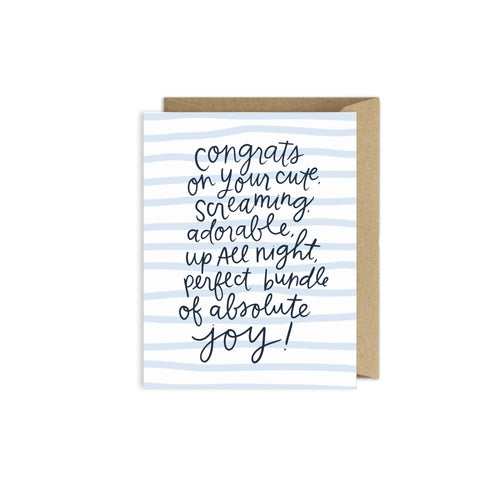 Congrats
on your cute,
screaming,
adorable,
up All night,
perfect bundle
of absolute
joy!